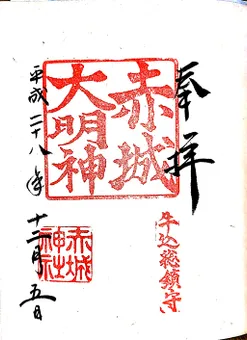 奉拝
牛込総鎮守
赤城
大明神
赤城
神社
平成二十八年
十二月五日